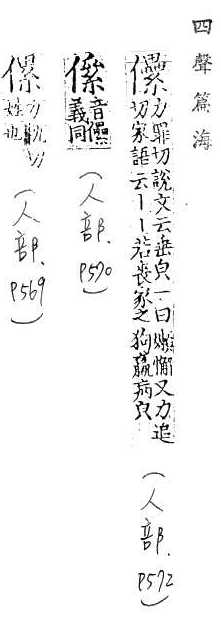 四聲篇海
儽 力罪切說文云垂皃一曰嬾懈又力追
切家語云丨丨若喪家之狗羸病皃
(人部.P572)
音儽
義同
(人部.P570)
傫 力切
姓也
(人部.P569)